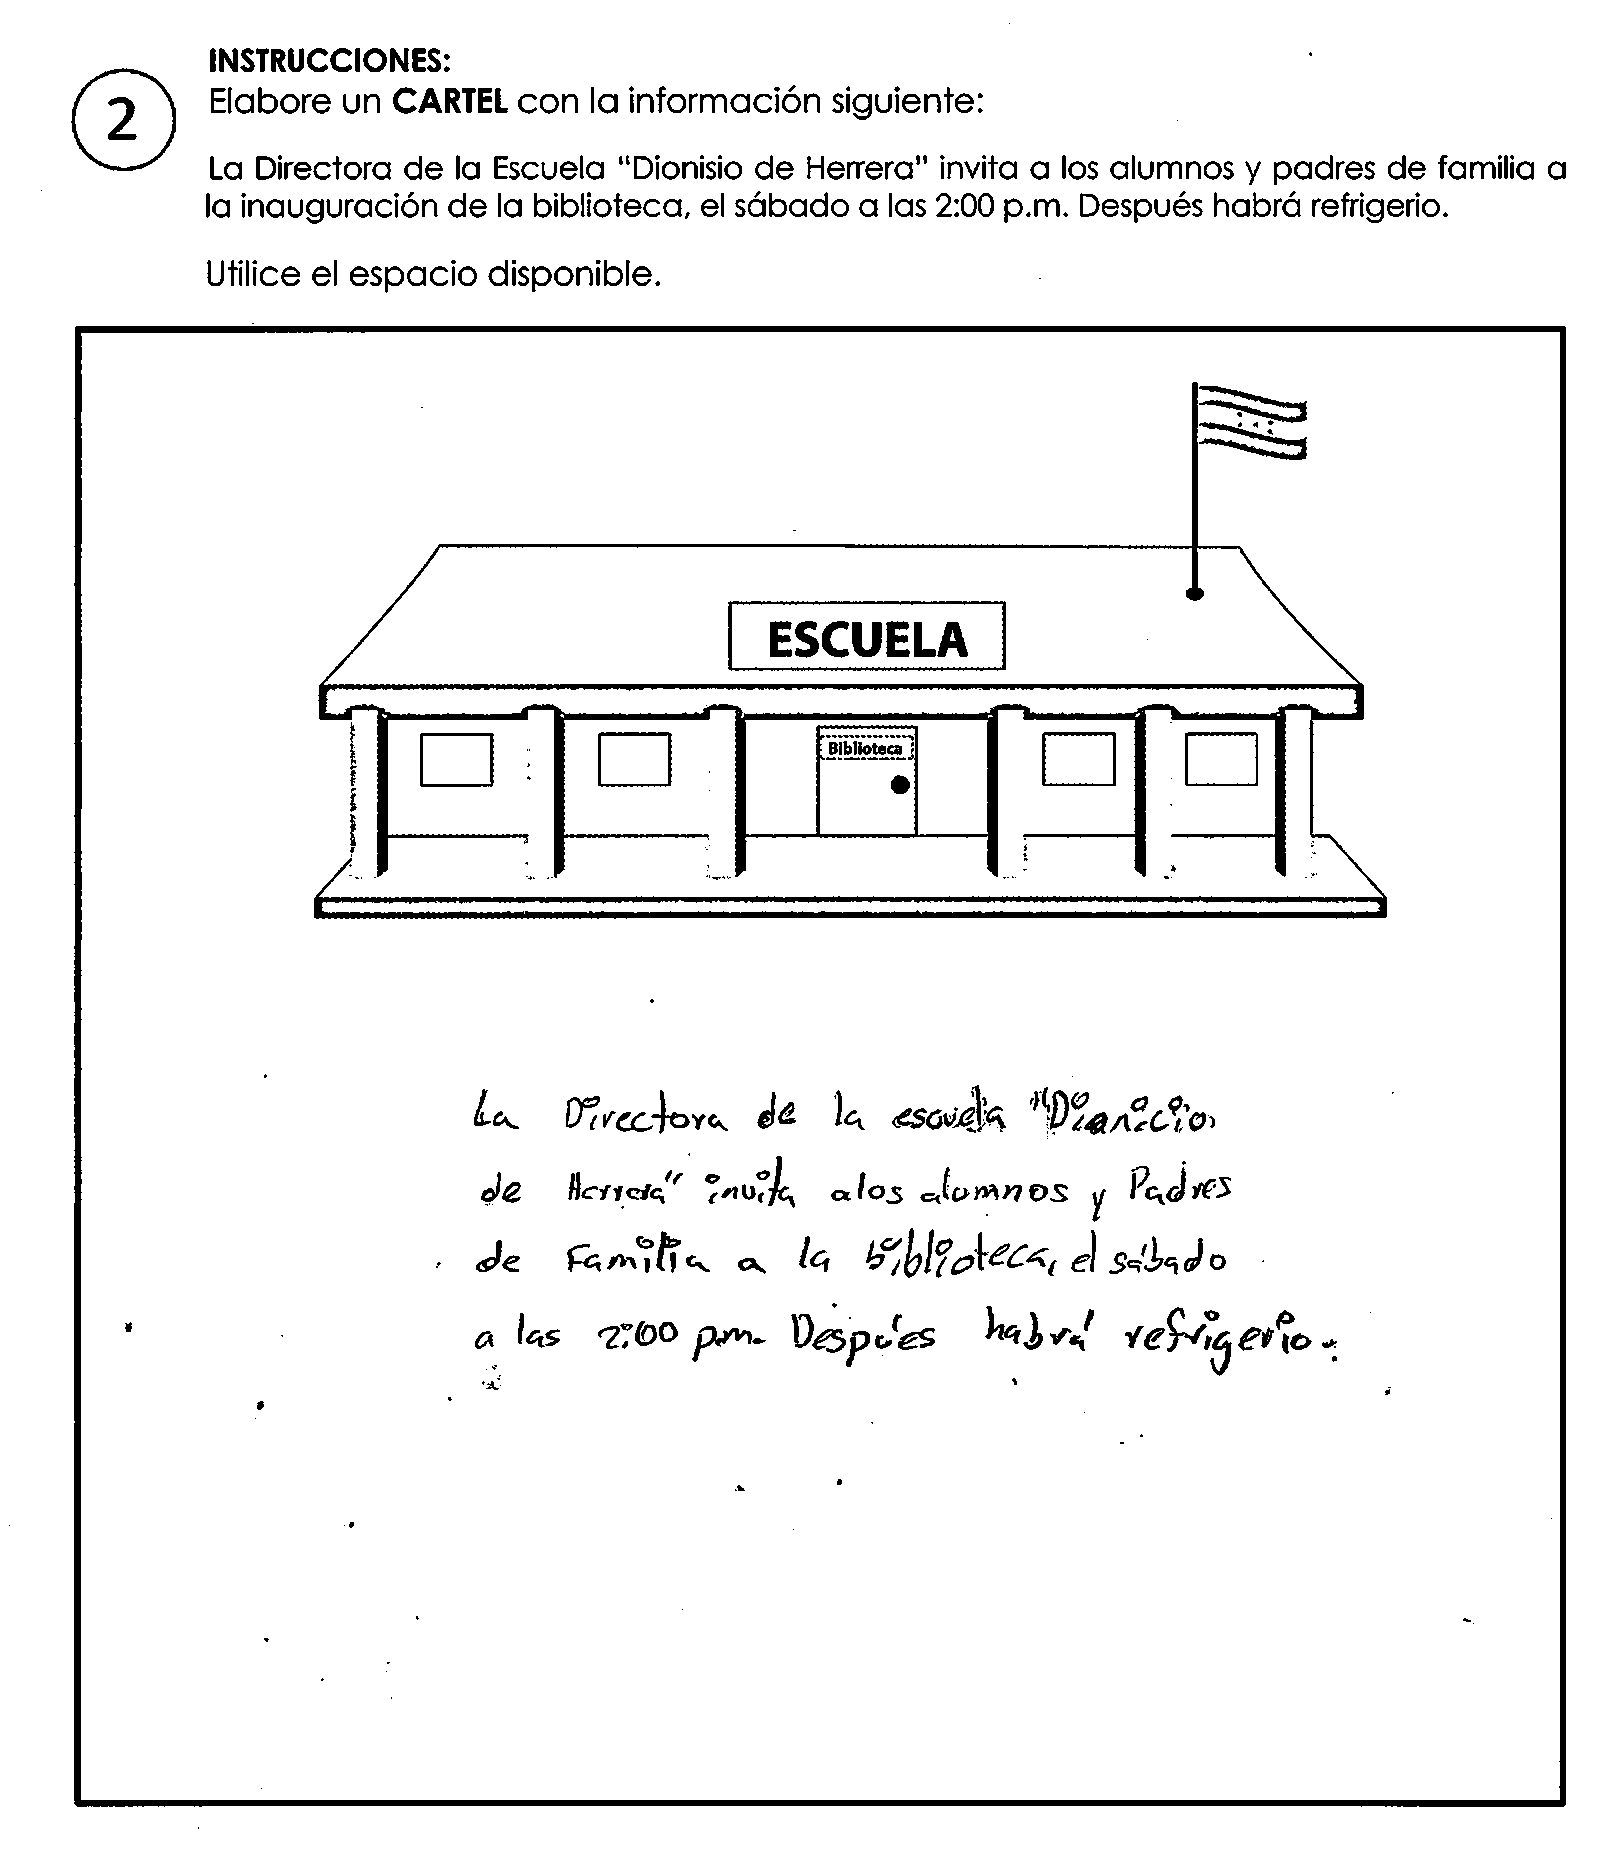 INSTRUCCIONES:
2
Elabore un CARTEL con la información siguiente:
La Directora de la Escuela "Dionisio de Herrera" invita a los alumnos y padres de familia a
la inauguración de la biblioteca, el sábado a las 2:00 p.m. Después habrá refrigerio.
Utilice el espacio disponible.
ESCUELA
Biblioteca
La Directora de la escuela "Dionicio
de Herrera" invita alos alumnos y Padres
de Familia a la biblioteca, el sábado
a las 2:00 p.m. Despúes habrá refrigerio.